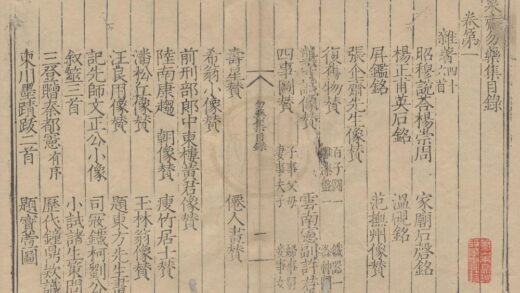 勿藥集目錄
卷第一
雜著四十六首
昭穆說答楊宗周　家廟石磬銘
楊正甫英石銘　溫硯銘
屏鑑銘
張企齋先生像贊　范撫州像贊
百子圖一
像贊　雲南憲副許君
四事圖贊　子事父母　妻事夫子
勿藥集目錄
一
壽星贊　僊人畫贊
希翁小像贊
前刑部郎中東樓黃君像贊
陸南康趨朝像贊　瘦竹居士贊
潘松江像贊　王林翁像贊
汪良用像贊　題東方先生畫
記先師文正公小像　司寇鐵柯劉公
三首　小試諸生策問
三登贈秦都憲有序　歷代鐘鼎款識
東川墨蹟跋二首　題寶圖